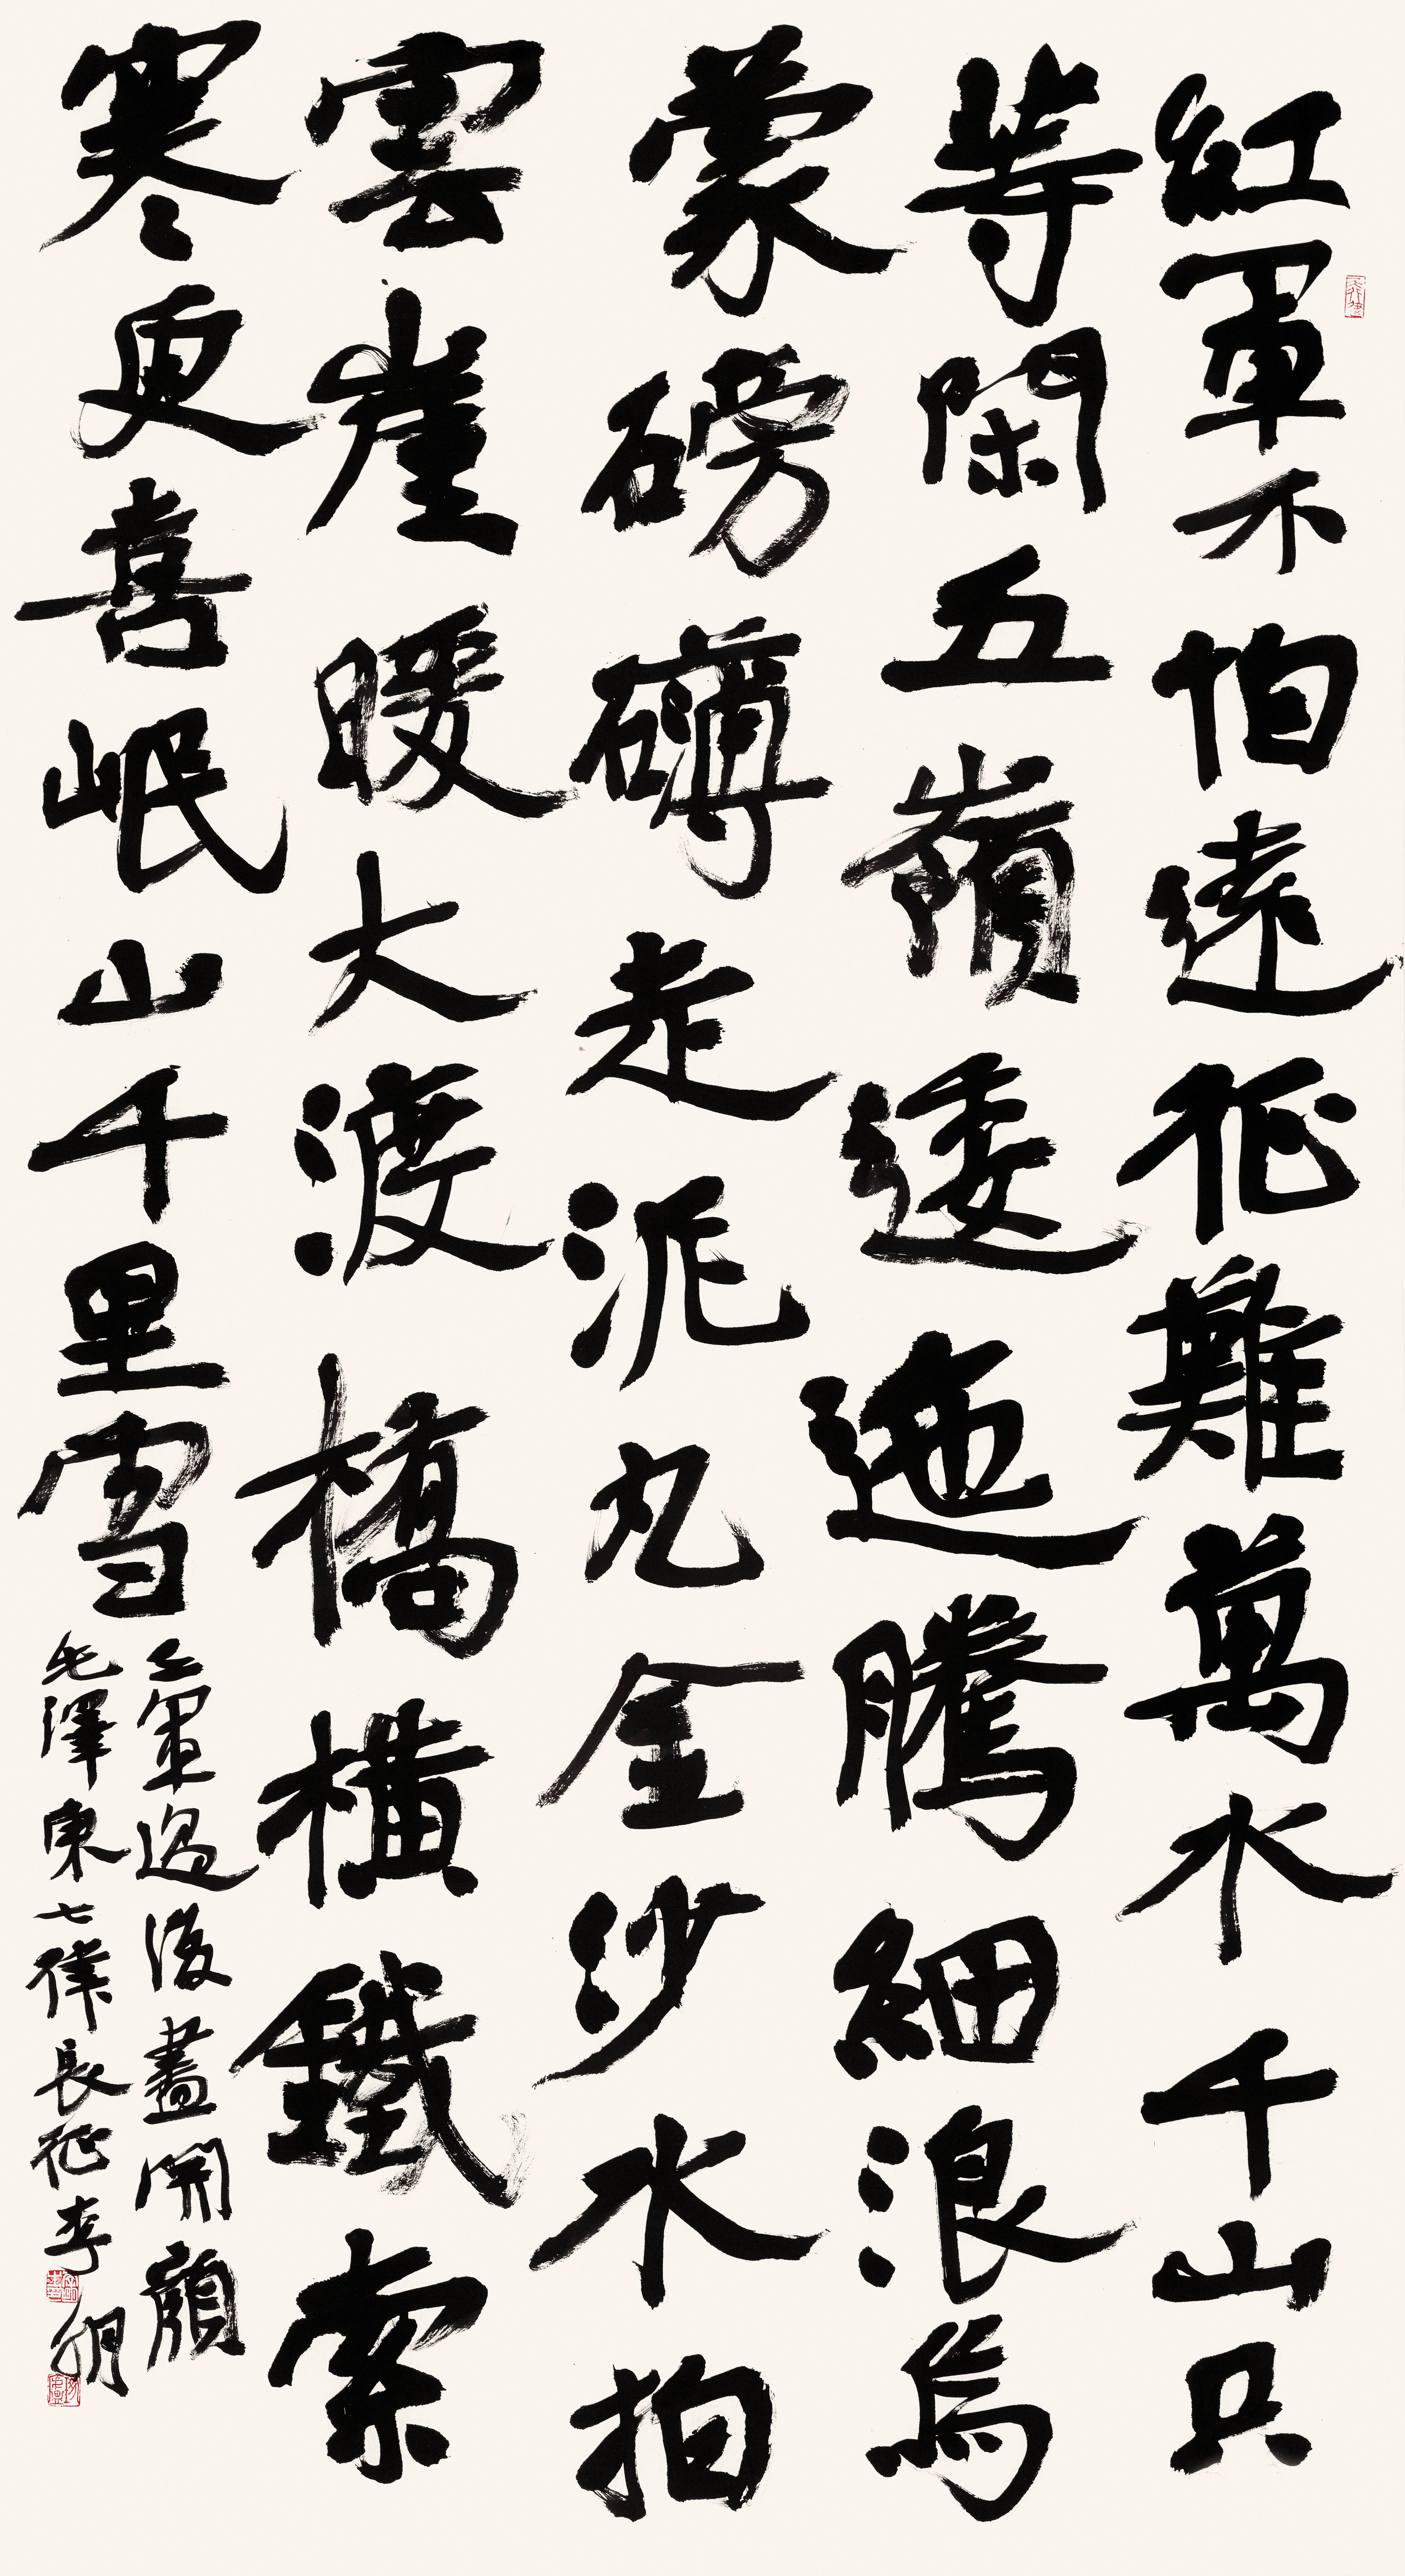 紅軍不怕遠征難萬水千山只
等閑五嶺逶迤騰細浪烏
蒙磅礴走泥丸金沙水拍
雲崖暖大渡橋橫鐵索
寒更喜岷山千里雪
三軍過後盡開顏
毛澤東七律長征李